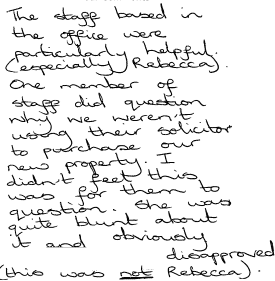 The staff based in
the office were
particularly helpful.
(especially Rebecca).
One member of
staff did question
why we weren't
using their solicitor
to purchase our
new property. I
didn't feet this
was for them to
question. She was
quite blunt about
it and obviously
disapproved
(this was not Rebecca).